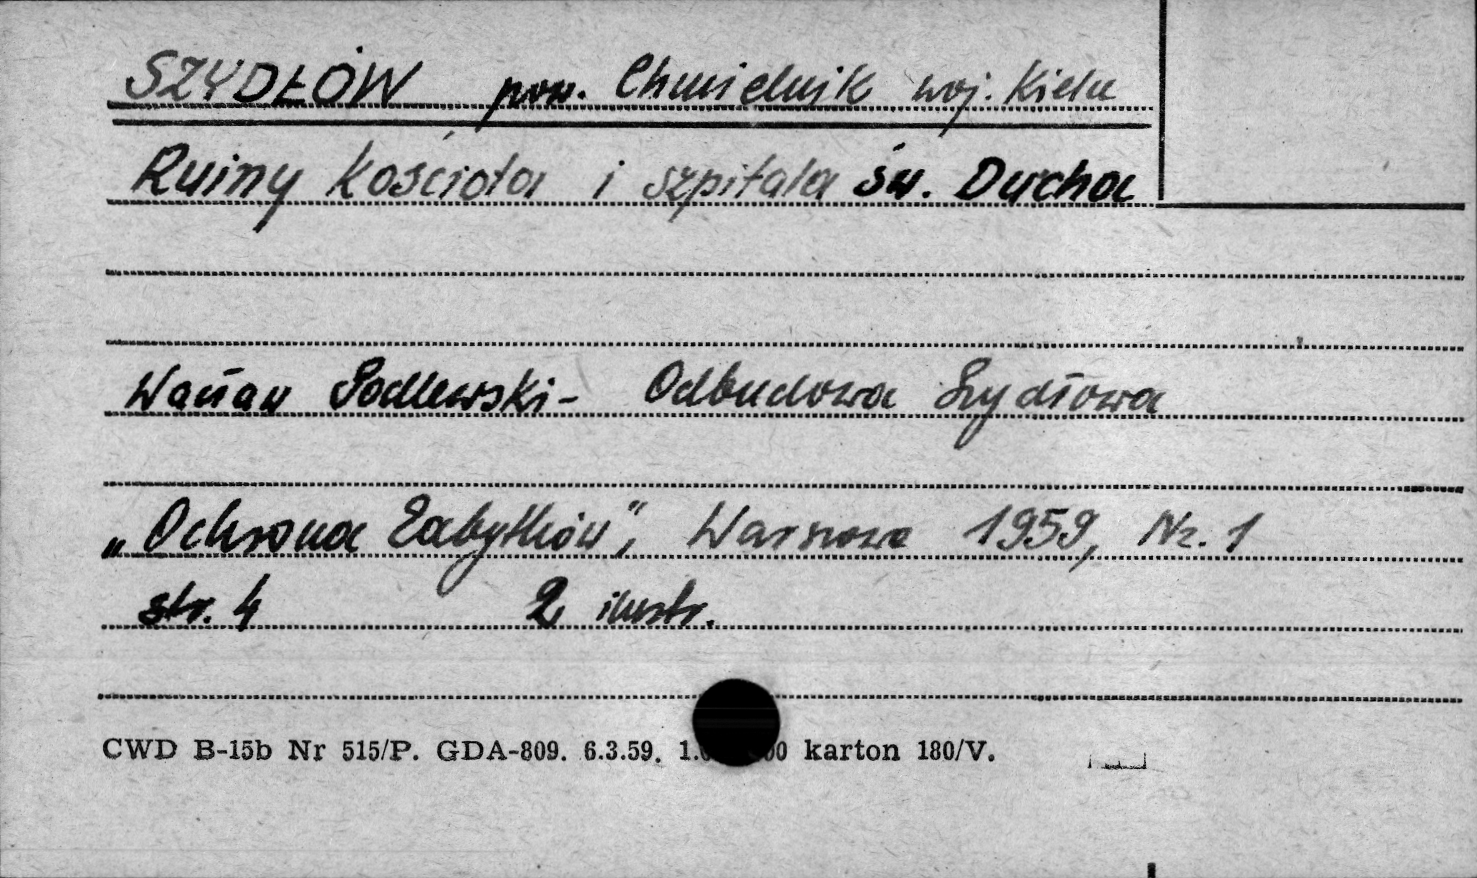 SZYDŁÓW pow. Chmielnik woj. Kielce
Ruiny kościoła i szpitala św. Ducha
Wacław Podlewski - Odbudowa Szydłowa
„Ochrona Zabytków", Warszawa 1959, Nr. 1
str. 4 2 ilustr.
CWD B-15b Nr 515/P. GDA-809. 6.3.59. karton 180/V.